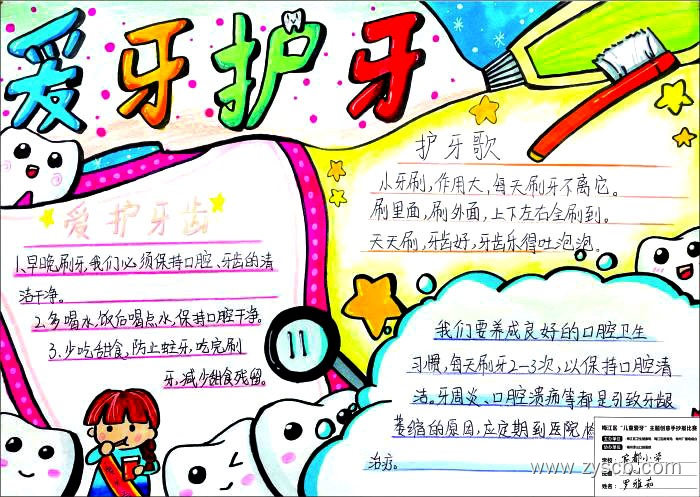 爱牙护牙
爱护牙齿
1、早晚刷牙,我们必须保持口腔、牙齿的清
洁干净。
2、多喝水,饭后喝点水,保持口腔干净。
3、少吃甜食,防止蛀牙,吃完刷
牙,减少甜食残留。
护牙歌
小牙刷,作用大,每天刷牙不离它。
刷里面,刷外面,上下左右全刷到。
天天刷,牙齿好,牙齿乐得吐泡泡。
我们要养成良好的口腔卫生
习惯,每天刷牙2-3次,以保持口腔清
洁。牙周炎、口腔溃疡等都是引致牙龈
萎缩的原因,应定期到医院
治疗。
梅江区“儿童爱牙”主题创意手抄报比赛
主办单位
协办单位
学校:
小学
班级:
姓名:罗雅茹
www.zyscb.com